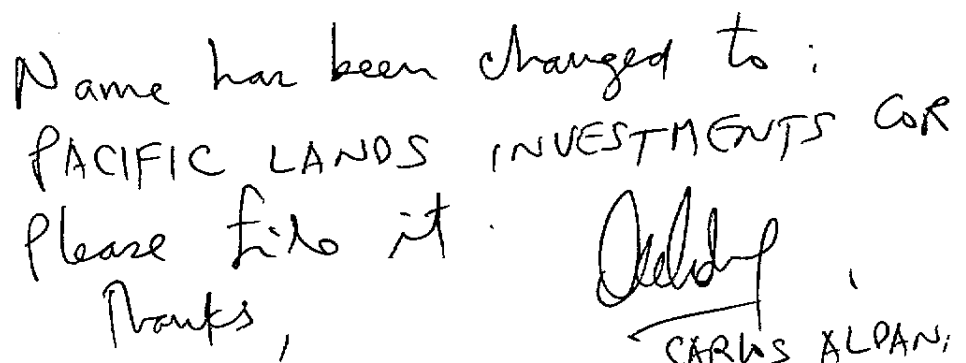 Name has been changed to:
PACIFIC LANDS INVESTMENTS COR
Please file it.
Thanks,
CARLOS ALDAN